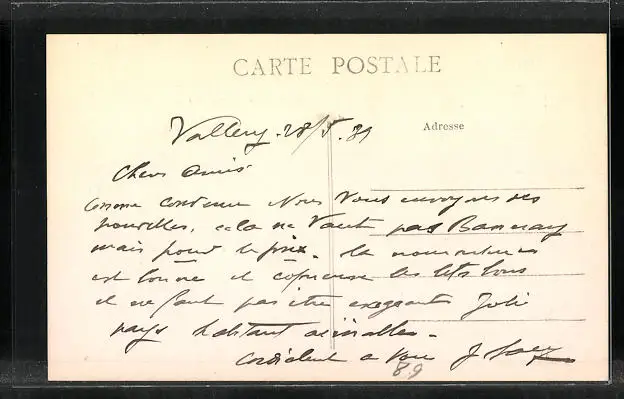 CARTE POSTALE
Vallery. 28/5. 39
Adresse
Chers Amis
comme convenu Nous Vous envoyons des
nouvelles. cela ne Vaut pas
mais pour le prix. la nourriture
est bonne et copieuse les lits bons
il ne faut pas être exigeants Joli
pays habitant aimables -
cordialement a Vous
89